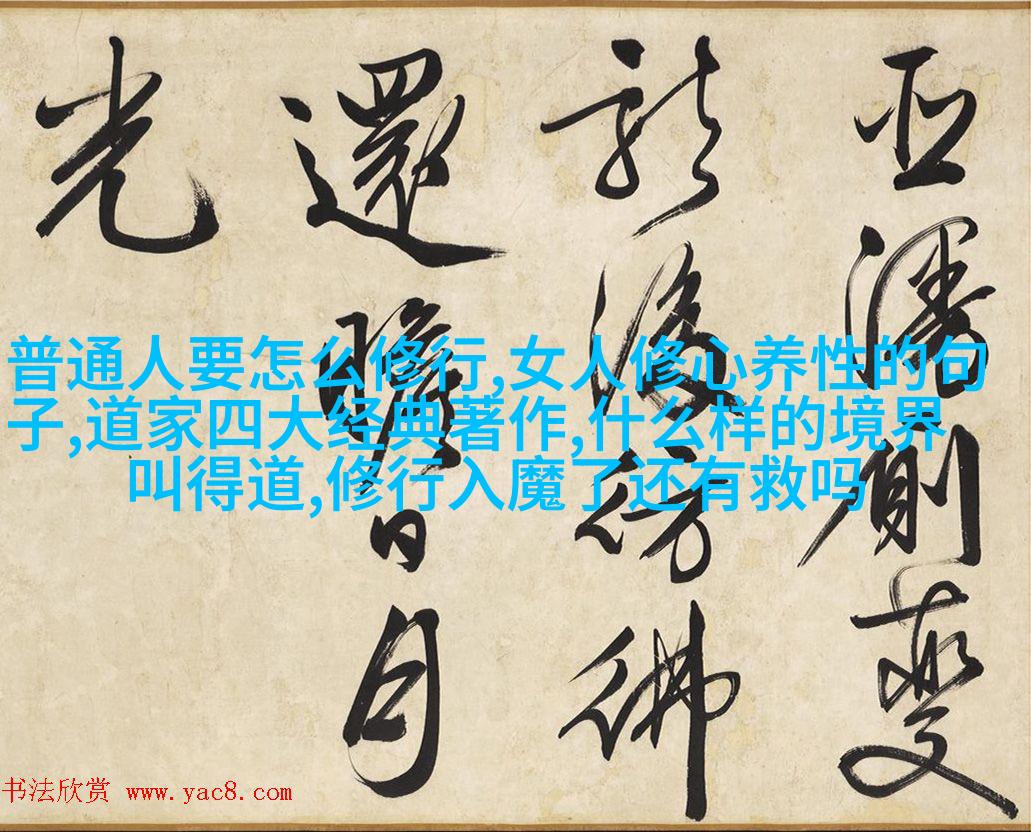 側變
彷彿
還瞻日月
光
普通人要怎么修行,女人修心养性的句
子,道家四大经典著作,什么样的境界
叫得道,修行入魔了还有救吗
书法欣赏 www.yac8.com